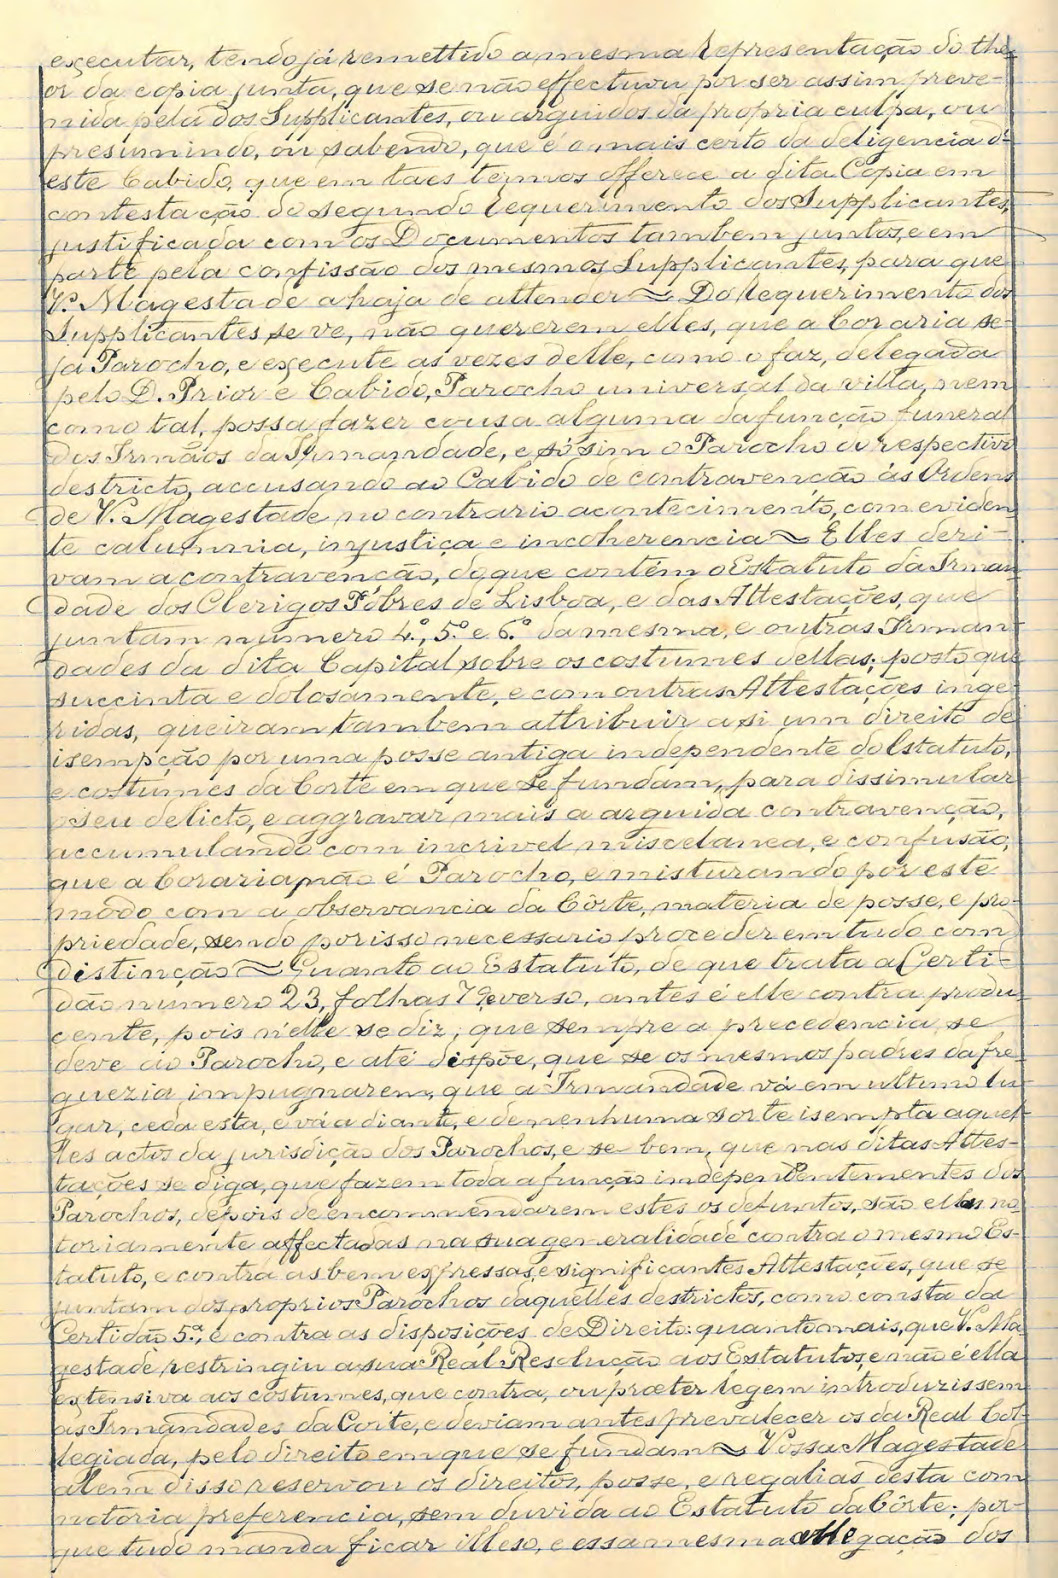 executar, tendo já remettido a mesma representação do the-
or da copia junta, que se não effectuou por ser assim preve-
nida pela dos Supplicantes, ou arguidos da propria culpa, ou
presumindo, ou sabendo, que é o mais certo da deligencia d'-
este Cabido, que em taes termos offerece a dita Copia em
contestação do segundo requerimento dos Supplicantes,
justificada com os Documentos tambem juntos, e em
parte pela confissão dos mesmos Supplicantes, para que
V. Magestade a haja de attender ~ Do requerimento dos
Supplicantes se ve, não quererem elles, que a Coraria se-
ja Parocho, e execute as vezes delle, como o faz, delegada
pelo D. Prior e Cabido, Parocho universal da villa, nem
como tal, possa fazer cousa alguma da função funeral
dos Irmãos da Irmandade, e só sim o Parocho do respectivo
destricto, accusando ao Cabido de contravenção ás Ordens
de V. Magestade no contrario acontecimento, com eviden-
te calumnia, injustiça e incoherencia ~ Elles deri-
vam a contravenção, do que contém o Estatuto da Irman-
dade dos Clerigos Pobres de Lisboa, e das Attestações, que
juntam numero 4.º, 5.º e 6.º da mesma, e outras Irman-
dades da dita Capital sobre os costumes dellas; posto que
succinta e dolosamente, e com outras Attestações inge-
ridas, queiram tambem attribuir a si um direito de
isempção por uma posse antiga independente do Estatuto,
e costumes da Corte em que se fundam, para dissimular
o seu delicto, e aggravar mais a arguida contravenção,
accumulando com incrivel miscelanea, e confusão,
que a Coraria não é Parocho, e misturando por este
modo com a observancia da Côrte, materia de posse, e pro-
priedade, sendo por isso necessario proceder em tudo com
distinção ~ Quanto ao Estatuto, de que trata a Certi-
dão numero 23, folhas 79 verso, antes é elle contra produ-
cente, pois n'elle se diz, que sempre a precedencia se
deve ao Parocho, e até dispõe, que se os mesmos padres da fre-
guezia impugnarem, que a Irmandade vá em ultimo lu-
gar, ceda esta, e vá adiante, e de nenhuma sorte isempta aquel-
les actos da jurisdição dos Parochos, e se bem, que nas ditas Attes-
tações se diga, que fazem toda a função independentementes dos
Parochos, depois de encommendarem estes os defuntos, são ellas no-
toriamente affectadas na sua generalidade contra o mesmo Es-
tatuto, e contra as bem expressas, e significantes Attestações, que se
juntam dos proprios Parochos daquelles destrictos, como consta da
Certidão 5.ª, e contra as disposições de Direito: quanto mais, que V. Ma-
gestade restringiu a sua Real Resolução aos Estatutos, e não é ella
extensiva aos costumes, que contra, ou præter legem introduzissem
as Irmandades da Corte, e deviam antes prevalecer os da Real Col-
legiada, pelo direito em que se fundam ~ Vossa Magestade
alem disso reservou os direitos, posse, e regalias desta com
notoria preferencia, sem duvida ao Estatuto da Côrte; por-
que tudo manda ficar illeso, e essa mesma allegação dos